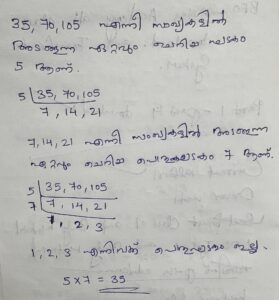 35, 70, 105 എന്നീ സംഖ്യകളിൽ
അടങ്ങുന്ന ഏറ്റവും ചെറിയ ഘടകം
5 ആണ്.
5 | 35, 70, 105
7, 14, 21
7, 14, 21 എന്നീ സംഖ്യകളിൽ അടങ്ങുന്ന
ഏറ്റവും ചെറിയ പൊതുഘടകം 7 ആണ്.
5 | 35, 70, 105
7 | 7, 14, 21
1, 2, 3
1, 2, 3 എന്നിവക്ക് പൊതുഘടകം ഇല്ല.
5 x 7 = 35